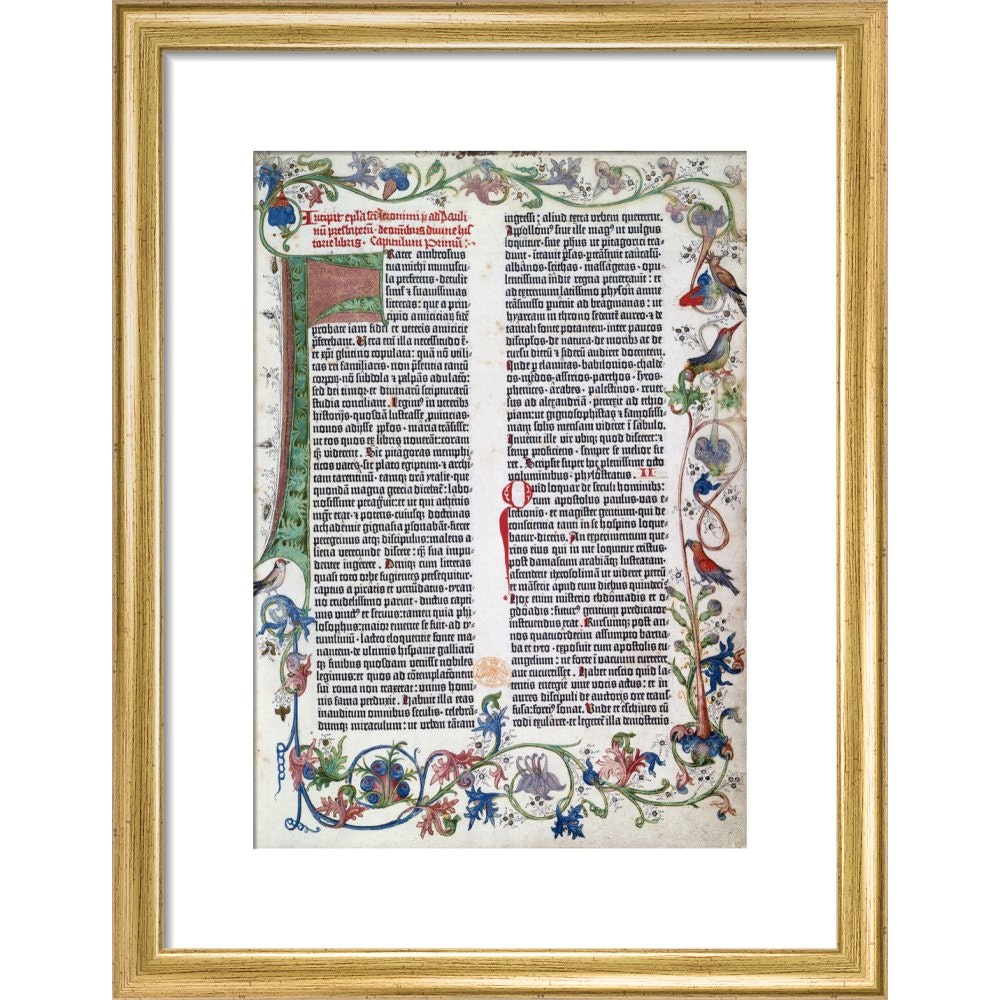 Incipit epl̃a sc̃i Jeronimi p̃ ad Pauli
nũ presbiterũ · de omnibus diuine his
torie libris · Capitulum Primũ :
Frater ambrosius
tua michi munuscu-
la perferens · detulit
simł & suauissimas
litteras : que a prin-
cipio amiciciarũ fidẽ
probate iam fidei et veteris amicicie
p̃ferebant. Vera enĩ illa necessitudo ẽ·
et xp̃i glutino copulata : quã nõ utili-
tas rei familiaris · non p̃sentia tantũ
corporũ · nõ subdola & palpãs adulatõ:
sed dei timor · et diuinarũ scripturarũ
studia conciliant. Legimꝰ in veteribꝫ
historijs · quosdã lustrasse puincias·
nouos adysse pplos · maria trãsisse:
ut eos quos ex libris nouerãt: coram
quoqꝫ viderent. Sic pitagoras memphi-
ticos vates · sic plato egiptum · & archi-
tam tarentinũ · eamqꝫ orã ytalie · que
quondã magna grecia dicebat̃: labo-
riosissime peragrauit: et ut qui athenis
mgr̃ erat · & potens · cuiusqꝫ doctrinas
achademie gignasia psonabãt · fieret
peregrinus atqꝫ discipulus: malens a-
liena verecunde discere : qꝫ sua impu-
denter ingerere. Deniqꝫ cum litteras
quasi toto orbe fugientes persequitur·
captus a piratis et venũdatus · tyran-
no crudelissimo paruit · ductus capti-
uus vinctꝰ et seruus: tamen quia phi
losophus: maior emente se fuit · ad ty-
tumliuiũ · lacteo eloquentie fonte ma-
nantem · de ultimis hispanie galliarũ
qꝫ finibus quosdam venisse nobiles
legimus: et quos ad cõtemplacionẽ
sui roma non traxerat: unius homi-
nis fama perduxit. Habuit illa etas
inauditum omnibus seculis · celebran-
dumqꝫ miraculum: ut urbem tãtam
ingressi : aliud extra urbem quererent.
Appolloniꝰ siue ille magꝰ ut vulgus
loquitur · siue phus ut pitagorici tra-
dunt · ĩtrauit p̃sas · p̃trãsiuit caucasũ
albãnos · scithas · massagetas · opu-
lentissima indie regna penetrauit : et
ad extremum latissimo physon amne
trãsmisso puenit ad bragmanas : ut
hyarcam in throno sedentẽ aureo · & de
tantali fonte potantem · inter paucos
discipłos · de natura · de moribꝫ ac de
cursu dierũ & siderũ audiret docentem.
Inde p elamitas · babilonios · chalde-
os · medos · assirios · parthos · syros·
phenices · arabes · palestinos · reuer-
sus ad alexandriã · perrexit ad ethio-
piam: ut gignosophistas & famosissi-
mam solis mensam videret ĩ sabulo.
Inuenit ille vir ubiqꝫ quod disceret: &
semp proficiens · semper se melior fie-
ret. Scripsit super hoc plenissime octo
voluminibus · phylostratus. II
Quid loquar de seculi hominibꝫ:
cum apostolus paulus · vas e-
lectionis · et magister gentium · qui de
conscientia tanti in se hospitis loque-
batur · dicens. An experimentum que-
ritis eius qui in me loquitur cristus.
post damascum arabiãqꝫ lustratam:
ascenderit iherosolimã ut videret petrũ
et mãserit apud eum diebus quindecĩ.
Hoc enim misterio ebdomadis et o-
gdoadis : futurꝰ gentium predicator
instruendus erat. Rursumqꝫ post an-
nos quatuordecim assumpto barna-
ba et tyto · exposuit cum apostolis eu-
angelium: ne forte ĩ vacuum curreret
aut cucurrisset. Habet nescio quid la-
tentis energie viue vocis actus : et in
aures discipuli de auctoris ore trans-
fusa: fortiꝰ sonat. Unde et eschines cũ
rodi exularet · et legeret̃ illa demostenis